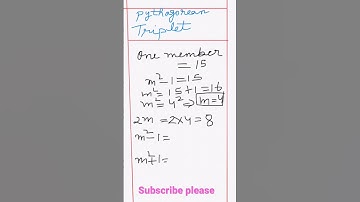 Pythagorean
Triplet
One member
= 15
m²-1=15
m²=15+1=16
m²=4² ⇒ m=4
2m =2x4=8
m²-1=
m²+1=
Subscribe please